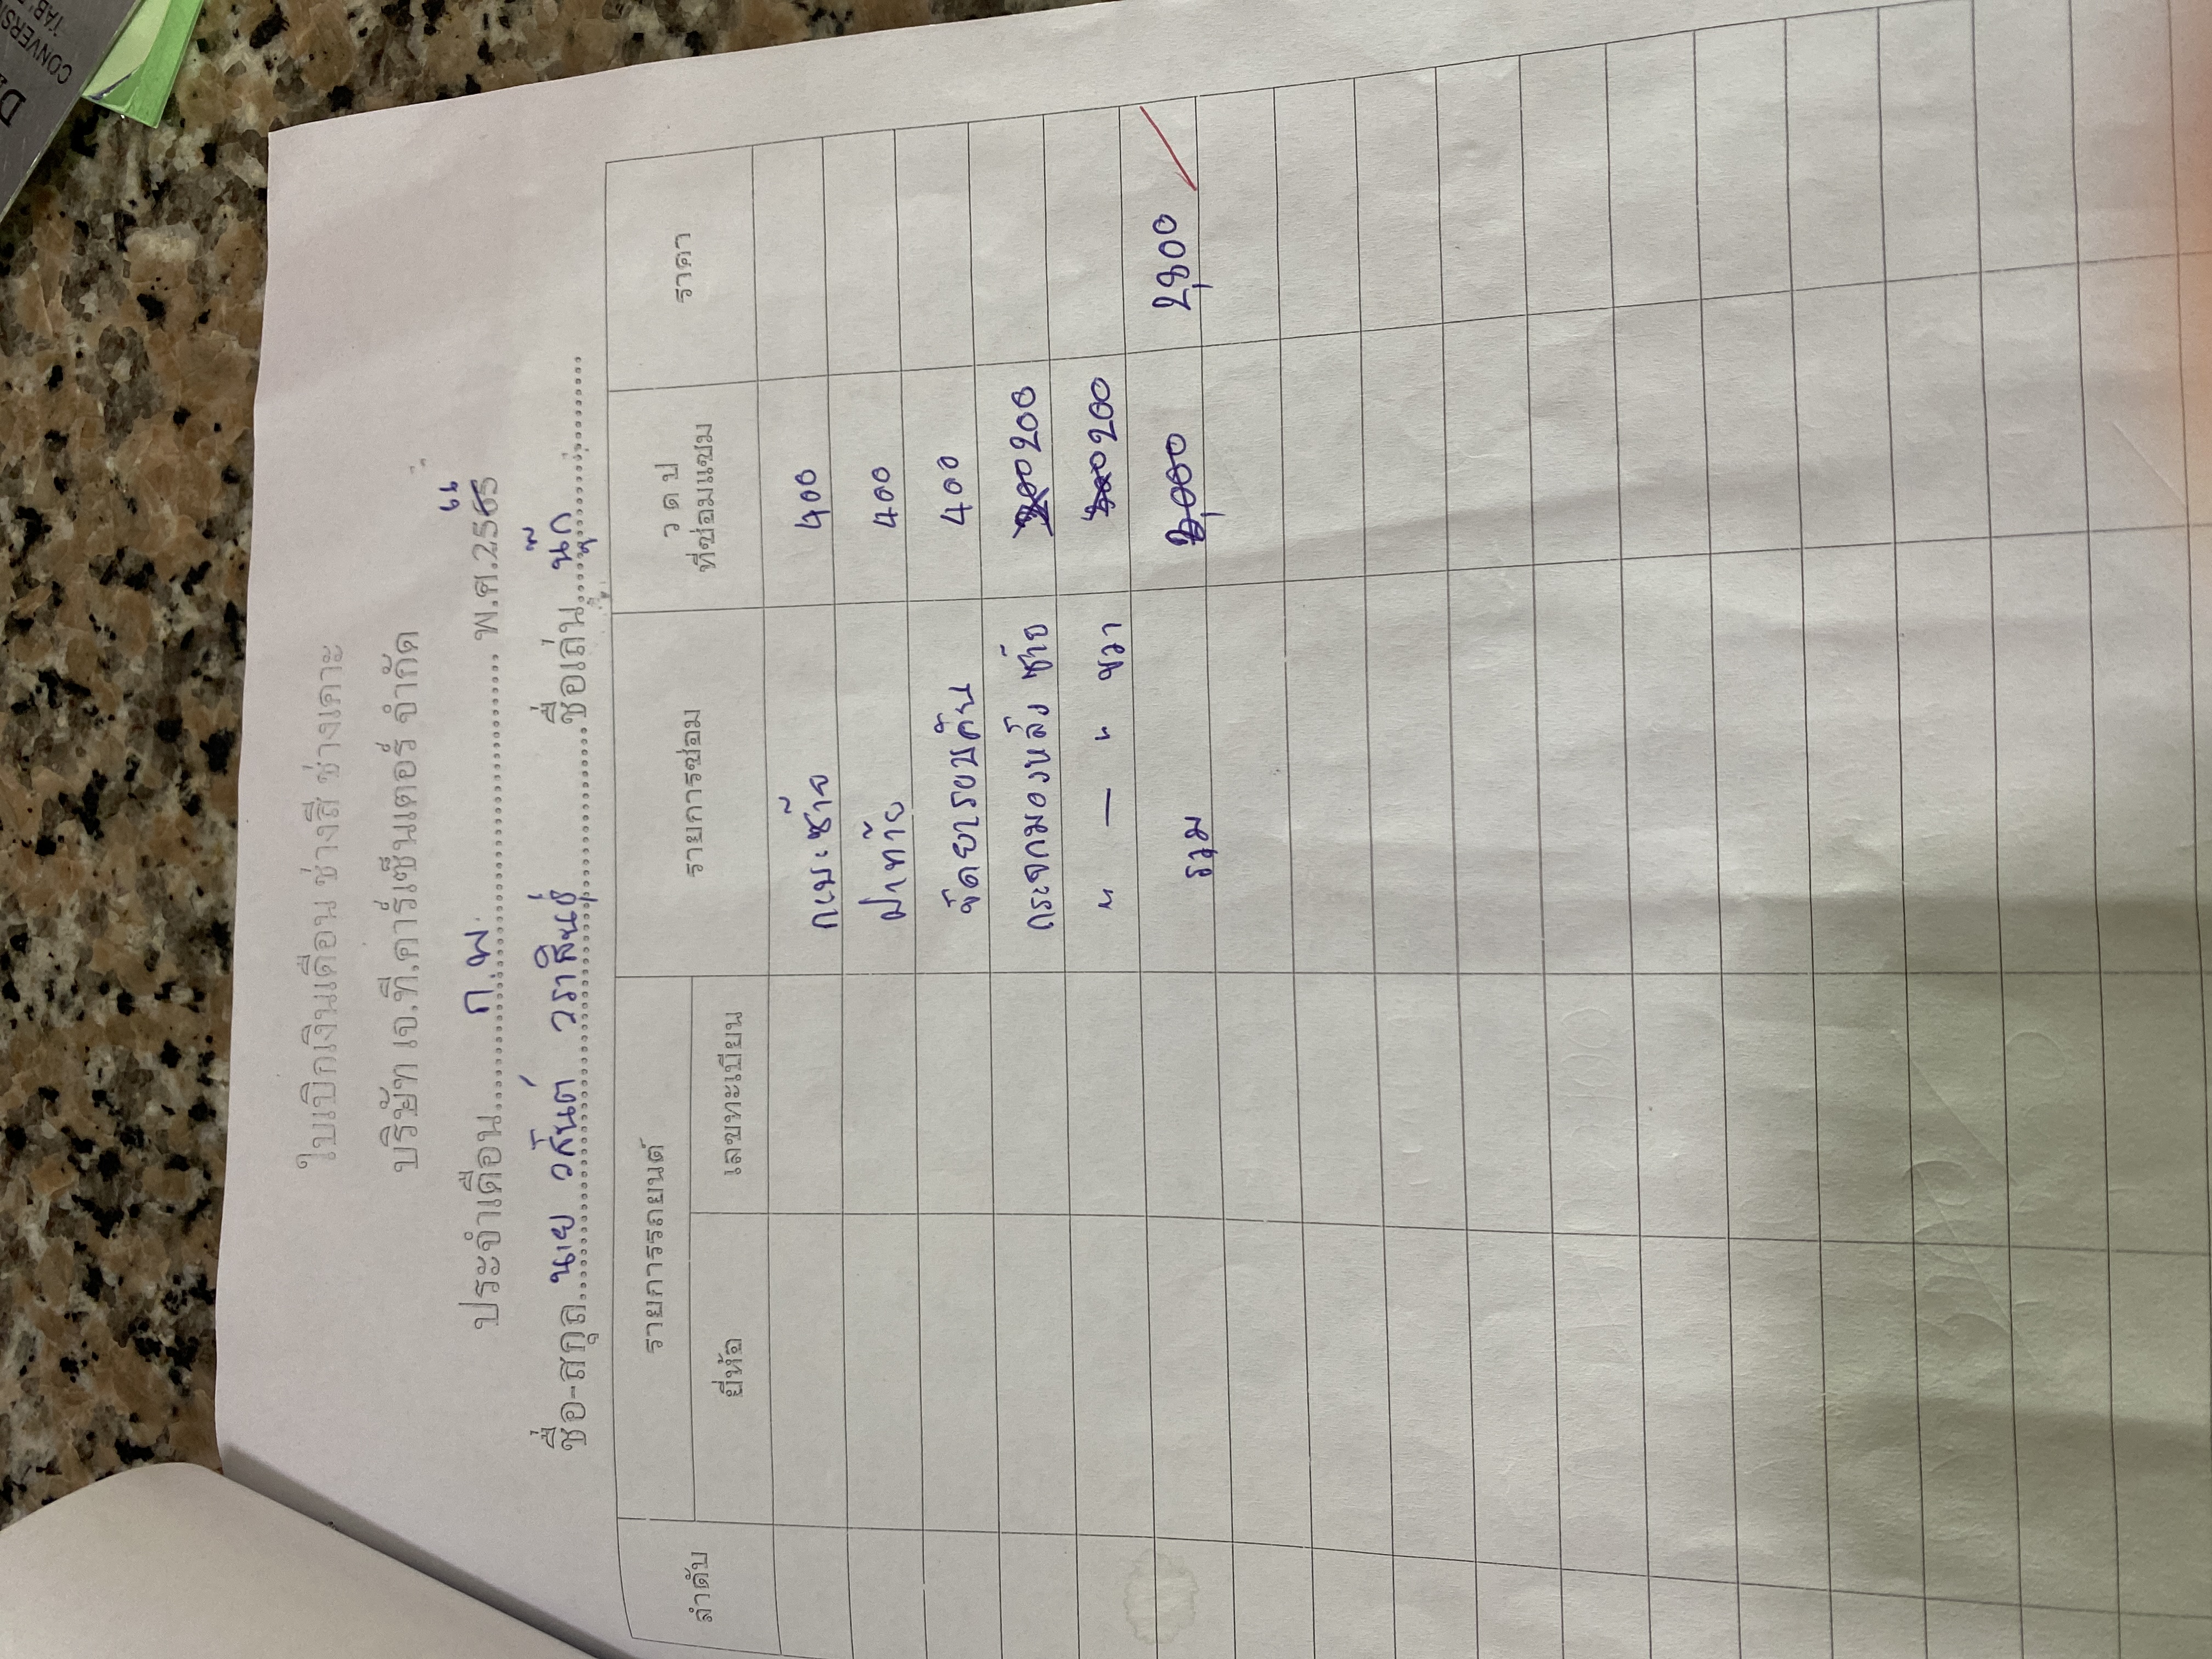 ใบเบิกเงินเดือน ช่างสี ช่างเคาะ
บริษัท เจ.ที.คาร์เซ็นเตอร์ จำกัด
ประจำเดือน ก.พ. พ.ศ.25
ชื่อ-สกุล นาย วสันต์ วราสินธุ์ ชื่อเล่น นุ๊ก
ลำดับ รายการรถยนต์ รายการซ่อม ว ด ป ที่ซ่อมแซม ราคา
ยี่ห้อ เลขทะเบียน
กะบะซ้าย 400
ฝาท้าย 400
ขัดยารอบคัน 400
กระจกมองหลัง ซ้าย 200
" — " ขวา 200
รวม 2,800
CONVERS